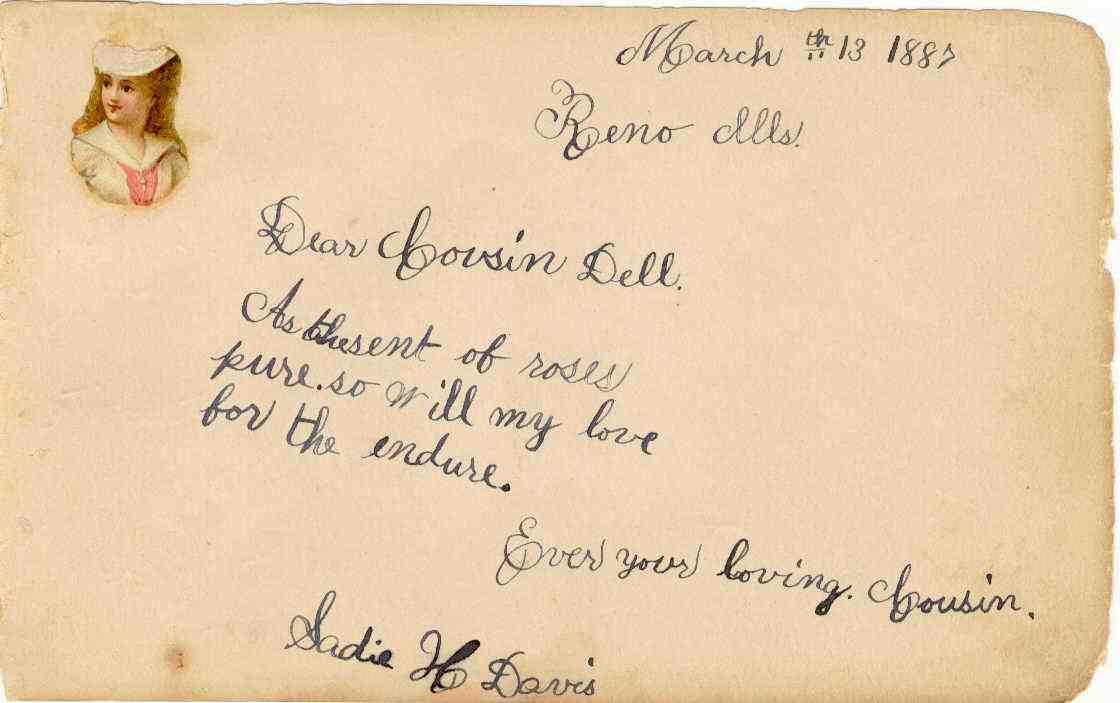 March th 13 1887
Reno Ills.
Dear Cousin Dell.
As the sent of roses
pure. so will my love
for the endure.
Ever your loving. Cousin.
Sadie H Davis